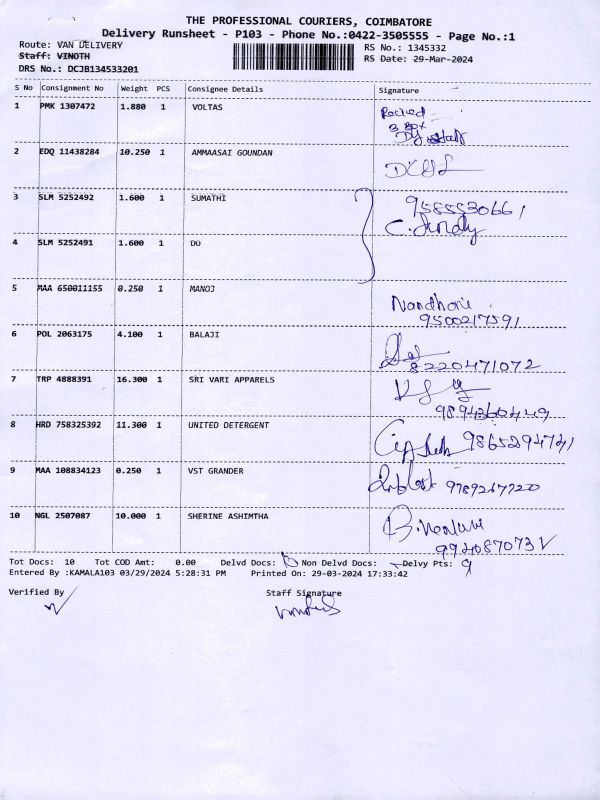 THE PROFESSIONAL COURIERS, COIMBATORE
Delivery Runsheet - P103 - Phone No.:0422-3505555 - Page No.:1
Route: VAN DELIVERY RS No.: 1345332
Staff: VINOTH RS Date: 29-Mar-2024
DRS No.: DCJB134533201
S No Consignment No Weight PCS Consignee Details Signature
1 PMK 1307472 1.880 1 VOLTAS
2 EDQ 11438284 10.250 1 AMMAASAI GOUNDAN
3 SLM 5252492 1.600 1 SUMATHI
9585530661
4 SLM 5252491 1.600 1 DO
5 MAA 650011155 0.250 1 MANOJ
9500217591
6 POL 2063175 4.100 1 BALAJI
8220471072
7 TRP 4888391 16.300 1 SRI VARI APPARELS
8 HRD 758325392 11.300 1 UNITED DETERGENT
9865294741
9 MAA 108834123 0.250 1 VST GRANDER
9789267720
10 NGL 2507087 10.000 1 SHERINE ASHIMTHA
9940870731
Tot Docs: 10 Tot COD Amt: 0.00 Delvd Docs: Non Delvd Docs: Delvy Pts: 9
Entered By :KAMALA103 03/29/2024 5:28:31 PM Printed On: 29-03-2024 17:33:42
Verified By Staff Signature